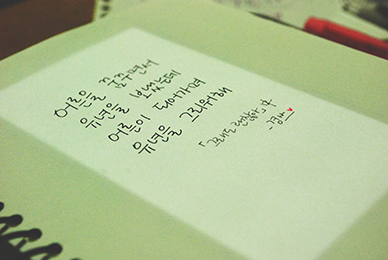 어른을 꿈꾸면서
유년을 보냈는데
어른이 되어가며
유년을 그리워해
「그래도 괜찮아」 中